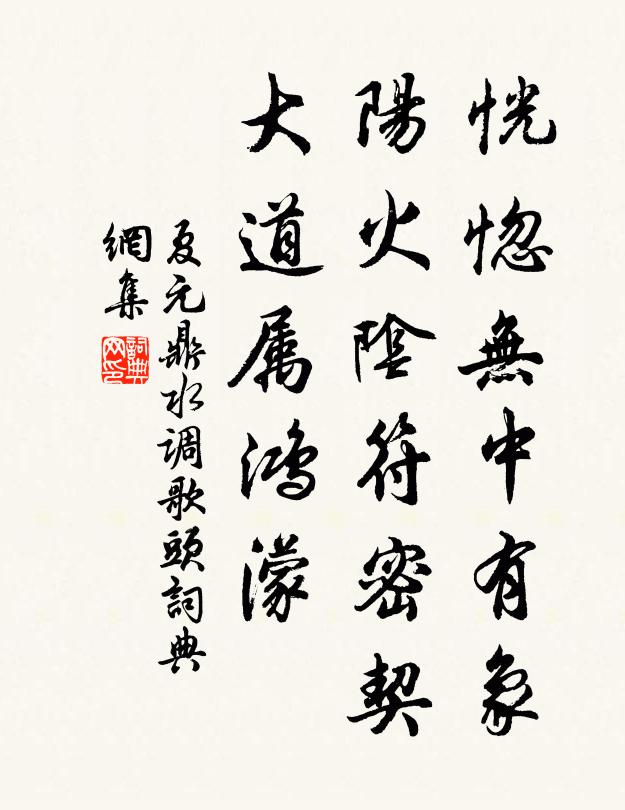 恍惚無中有象
陽火陰符密契
大道属鴻濛
夏元鼎水调歌頭詞典
網集
詞典
网印